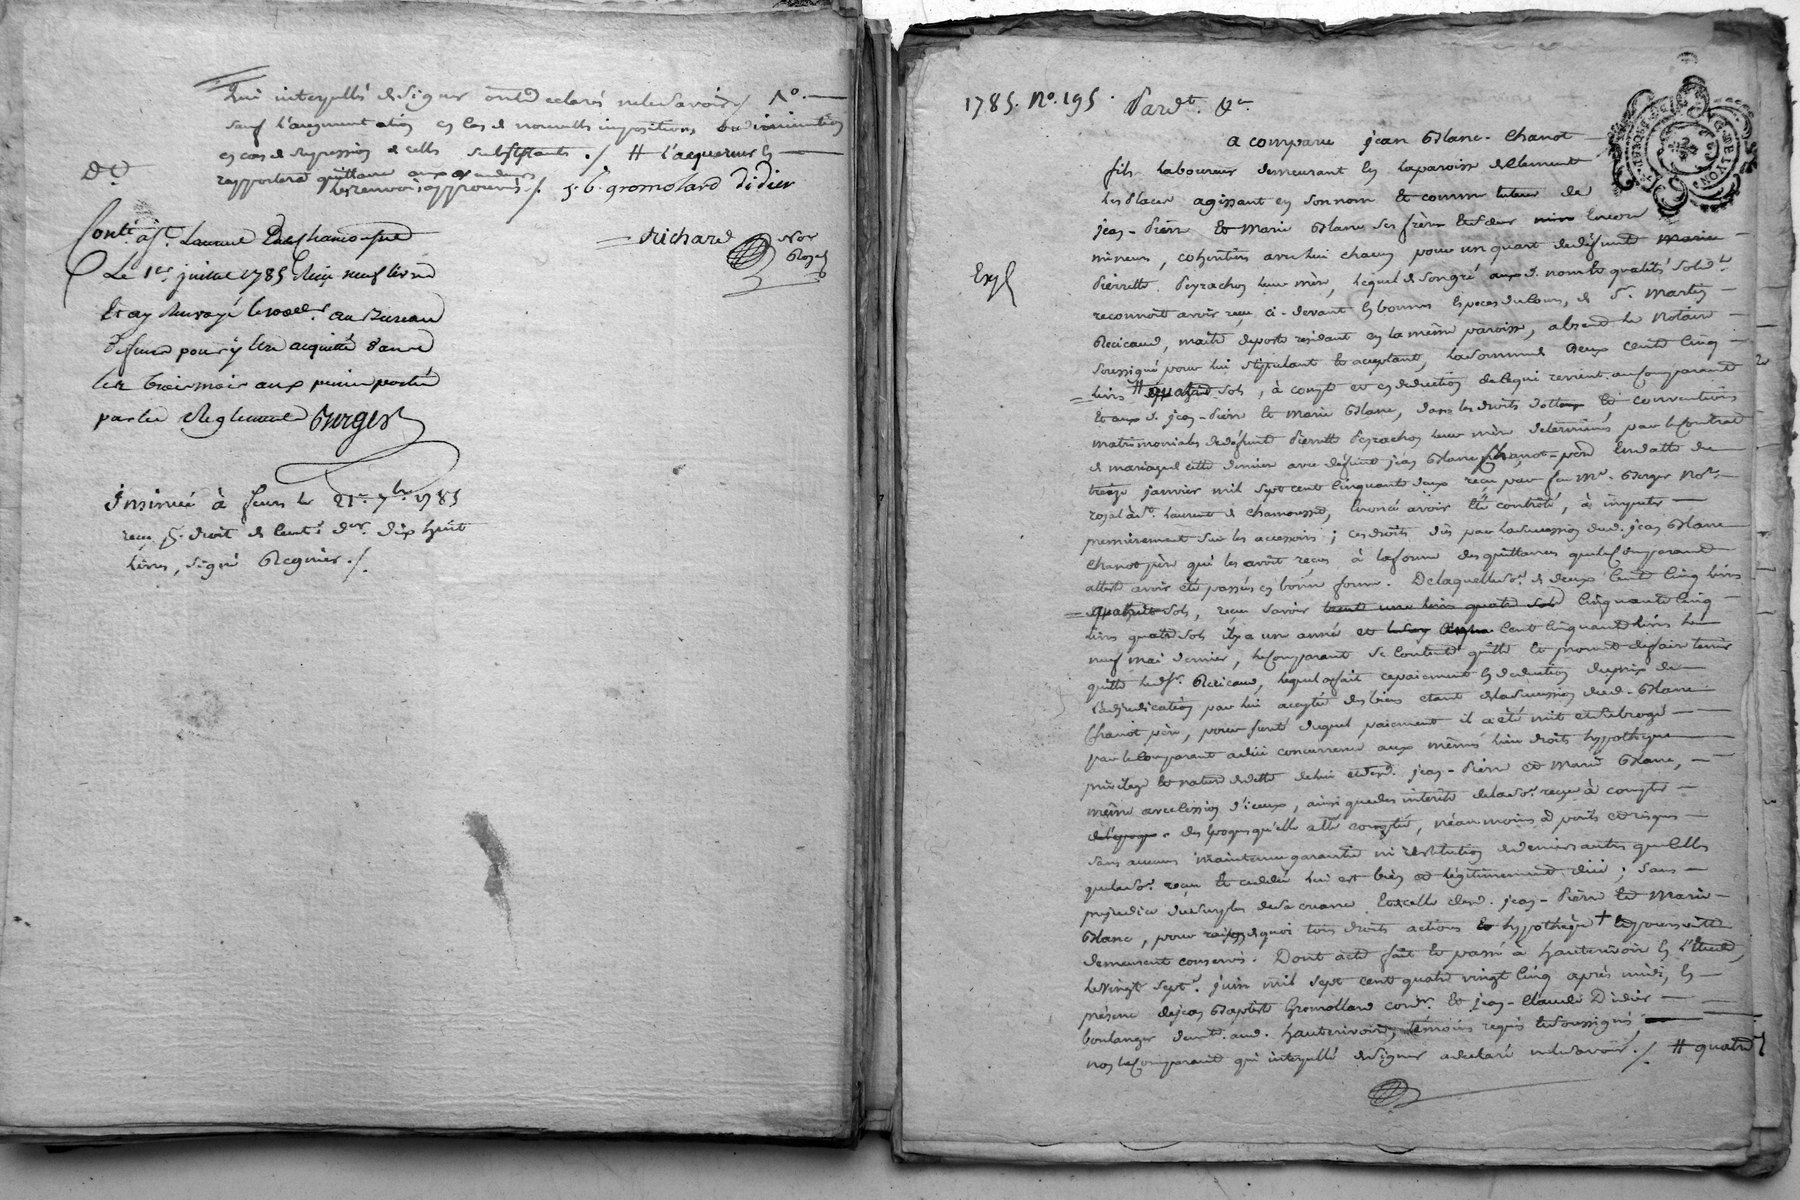 qui interpellés de signer ont déclarés ne le savoir
sauf l'augmentation en cas de nouvelles impositions ou diminution
en cas de supression de celles subsistants ./. # l'acquereur
rapportera quittance aux vendeurs
les renvois approuvés ./. j. b. gromolard didier
Richard Nore
Royal
Conté. à St. Laurent de Chamousset
Le 1er juillet 1785 Reçu neuf livres
Et ay renvoyé le au Bureau
pour y être acquitté dans
les trois mois aux peines portées
par les Reglement Burger
Insinué à feurs le 21e. 7bre 1785
reçu pr. droit de cent. der. dix huit
livres, signé Regnier ./.
1785. No. 195. Pardt. &a
a comparu jean Blanc-Chanot
fils laboureur demeurant en la paroisse de Clement
Les places agissant en son nom et comme tuteur de
jean-Pierre et Marie Blanc ses frère et sœur encore
mineurs, cohéritiers avec lui chacun pour un quart de défunte Marie
Pierrette Peyrachon leur mère, lequel de son gré aux d. noms et qualités solidt.
Expé
reconnoit avoir reçu ci-devant en bonnes especes de cours, de Sr. Martin
Recicaud, maitre de poste residant en la même paroisse, absent le Notaire
soussigné pour lui stipulant et acceptant, la somme Deux cents cinq
livres # quatre sols, à compte et en deduction de ce qui revient au comparant
et aux d. jean-Pierre et Marie Blanc, dans les droits dotaux et conventions
matrimoniales de défunte Pierrette Peyrachon leur mère determinés par le contrat
de mariage de cette derniere avec défunt jean Blanc Chanot-père en datte du
treize janvier mil sept cent cinquante deux reçu par feu Me. Berger Nore.
royal à St. Laurent de Chamousset, énoncé avoir été contrôlé, à imputer
premièrement sur les accessoirs; ces droits dûs par la succession dud. jean Blanc
Chanot père qui les avoit reçus à la forme des quittances que led. comparant
atteste avoir été passées en bonne forme. De laquelle so. de deux cents cinq livres
quatre sols, reçue savoir trente une livres quatre sols cinquante cinq
livres quatre sols il y a un année et cent cinquante livres le
neuf mai dernier, le comparant se contente quitte et promet de faire tenir
quitte led. Sr. Recicaud, lequel a fait ce paiement en deduction du prix de
l'adjudication par lui acceptée des biens étant de la succession dud. Blanc
Chanot père, pour sureté duquel paiement il a été mit et subrogé
par le comparant a due concurrence aux mêmes lieu droits hypotheque
privilege et nature de dette de lui et desd. jean-Pierre et Marie Blanc,
même avec cession d'iceux, ainsi que des interêts de la so. reçue à compter
de l'epoque des époques qu'elle a été comptée, néanmoins à perils et risques
sans aucune maintenue garantie ni restitution de deniers autres que celles
que la so. reçue et cedée lui est bien et légitimement due; sans
prejudice du surplus de sa creance et de celle desd. jean-Pierre et Marie
Blanc, pour raison de quoi tous droits actions et hypothèque + et poursuittes
demeurent conservés. Dont acte fait et passé à hauterivoire en l'étude,
le vingt sept. juin mil sept cent quatre vingt cinq après midi, en
présence de jean Baptiste Gromollard cordr. et jean-Claude Didier
boulanger demt. aud. hauterivoire, témoins requis et soussignés,
non le comparant qui interpellé de signer a declaré ne le savoir ./. # quatre